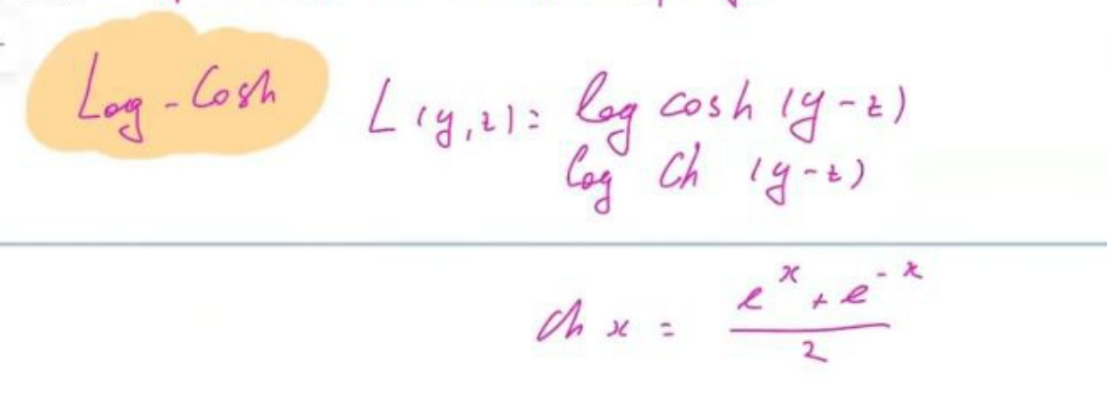 Log-Cosh L(y,z) = log cosh (y-z)
log ch (y-z)
ch x = (e^x + e^-x)/2